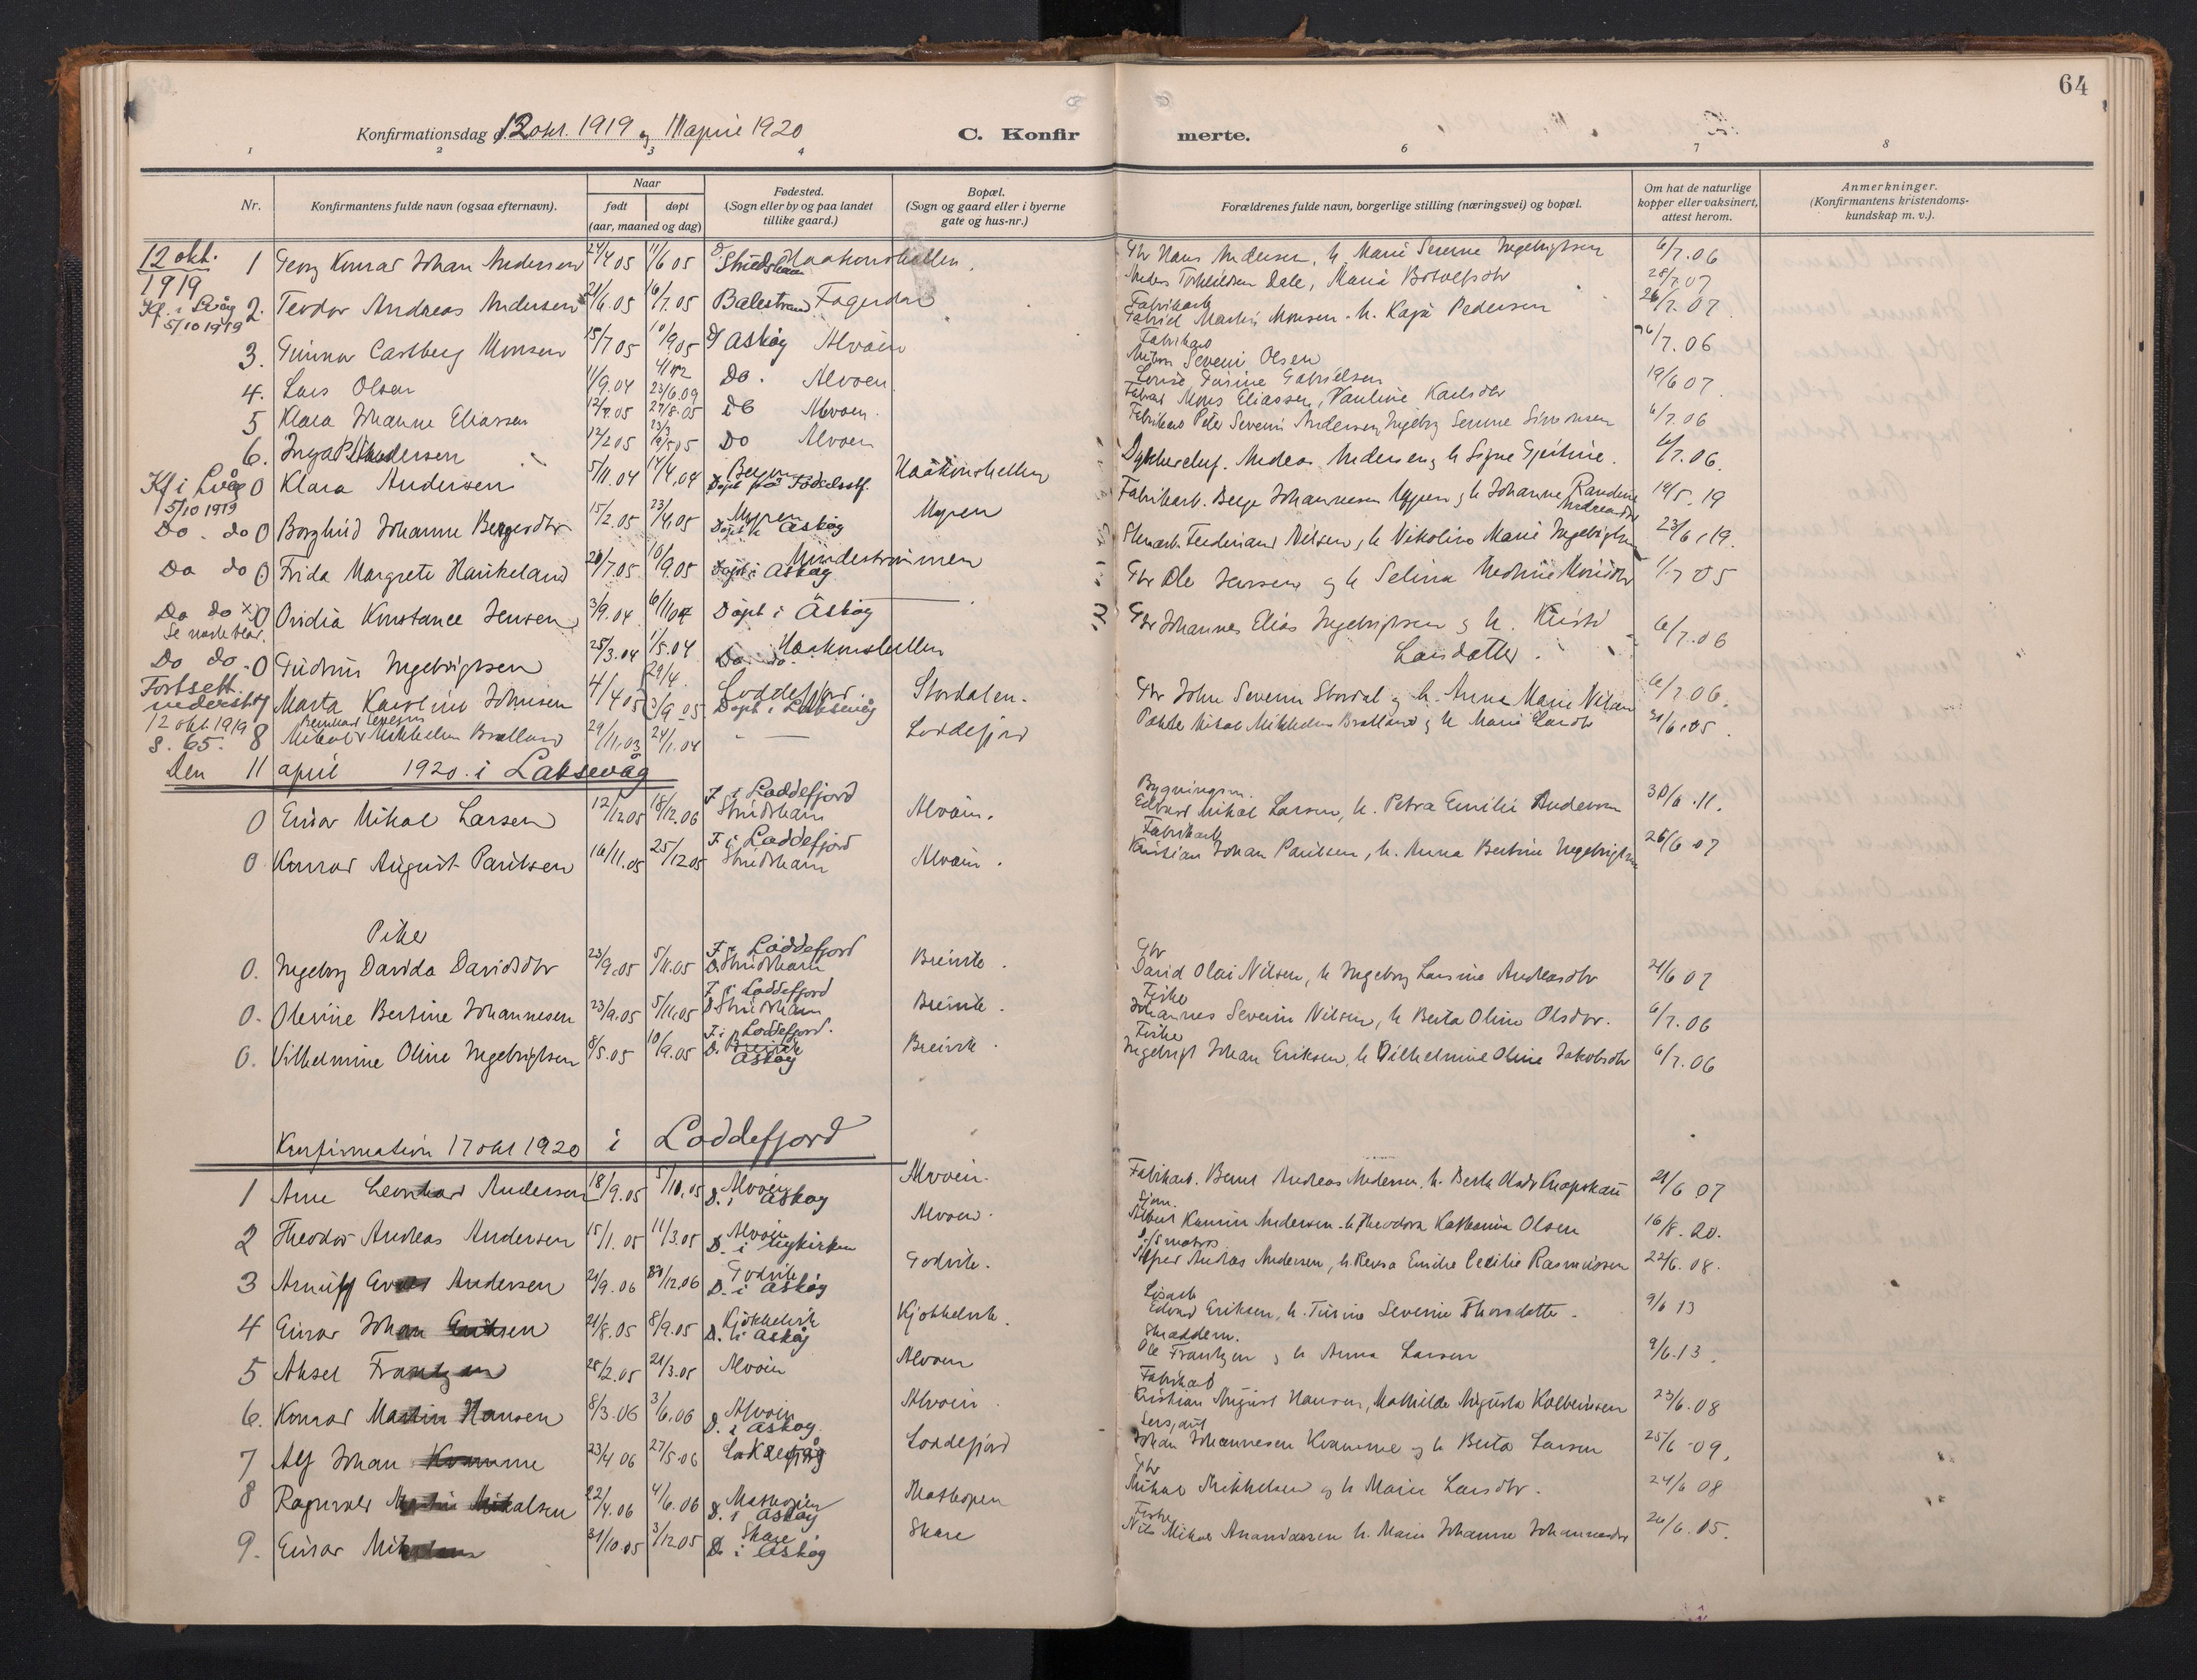 64
Konfirmationsdag d. 12 okt. 1919 og 11 april 1920
C. Konfirmerte.
1 2 3 4 6 7 8
Nr.
Konfirmantens fulde navn (ogsaa efternavn).
Naar
født
døpt
(aar, maaned og dag)
Fødested.
(Sogn eller by og paa landet
tillike gaard.)
Bopæl.
(Sogn og gaard eller i byerne
gate og hus-nr.)
Forældrenes fulde navn, borgerlige stilling (næringsvei) og bopæl.
Om hat de naturlige
kopper eller vaksinert,
attest herom.
Anmerkninger.
(Konfirmantens kristendoms-
kundskap m. v.).
12 okt. 1919
1 Georg Konrad Johan Andersen 24/4 05 11/6 05 Strudshavn Haakonshellen Gbr Hans Andersen, h. Marie Serene Ingebrigtsen 6/7.06
2. Teodor Andreas Andersen 21/6.05 16/7.05 Balestrand Fagerdal Anders Torkildsen Dale, Maria Botolfsdtr 28/7.07
Kf. i Lvåg 5/10 1919
3. Gunnar Carlberg Monsen 15/7 05 10/9 05 D Askøy Alvøen Fabrikarb Gabriel Martin Monsen h. Kaja Pedersen 26/7.07
4. Lars Olsen 11/9.04 23/6.09 Do. Alvøen Fabrikarb Severin Olsen Gurine Gabrielsen 6/7.06
5 Klara Johanne Eliassen 12/7.05 27/8.05 do Alvøen. Mons Eliassen, Pauline Karlsdtr 19/6 07
6. Inga Andersen 12/2 05 Do Alvøen Fabrikarb Peter Severin Andersen, Ingeborg Serene Simonsen 6/7.06
Kf i Lvåg 5/10 1919
0 Klara Andersen 5/11.04 Bergen Døpt på Fødselsstf. Haakonshellen Andreas Andersen og h Signe 6/7.06.
Do. do 0 Borghild Johanne Bergesdtr 15/2.05 23/4 05 Myren Døpt i Askøy Myren Fabrikarb. Berge Johannesen Myren og h Johanne Randine Andreasdtr 19/5.19
Do do 0 Frida Margrete Haukeland 20/7.05 10/9.05 Døpt i Askøy Mindestrømmen Stenarb. Ferdinand Nilsen, h Nikoline Marie Ingebrigtsen 23/6.19.
Do do x) 0 Ovidia Konstance Jensen 3/9.04 6/11 04 Døpt i Askøy Gbr Ole Jensen og h Selina 1/7 05
Se neste blad.
Do do. 0 Gudrun Ingebrigtsen 25/3.04 1/5.04 Do. do. Haakonshellen Gbr Johannes Elias Ingebrigtsen og h. Kristi
Larsdatter. 6/7.06
Fortsett. nederst
7 Marta Karoline Johnsen 4/4 05 Loddefjord. Døpt i Laksevåg Stordalen. Gbr John Severin Stordal og h. Anna Marie Nilsen 6/7 06.
12 okt. 1919
s. 65. 8 Mikal Mikkelsen Brælland 29/11.03 24/1.04 Loddefjord Mikal Mikkelsen Brælland og h Marie Larsdtr
Den 11 april 1920. i Laksevåg
0 Einar Mikal Larsen 12/12 05 18/12.06 F i Loddefjord Strudshavn Alvøen. Bygningsm. Edvard Mikal Larsen, h. Petra Emilie Andersen 30/6.11.
0 Konrad August Paulsen 16/11.05 25/12 05 F i Loddefjord Strudshavn Alvøen. Fabrikarb Kristian Johan Paulsen, h. Anna Bertine Ingebrigtsen 26/6 07
Piker
0. Ingeborg Davida Davidsdtr 23/9.05 5/11.05 F. i Loddefjord D. Strudshavn Breivik. Gbr David Olai Nilsen, h Ingeborg Larsine Andreasdtr 21/6 07
0. Olevine Bertine Johannesen 23/9.05 5/11.05 F. i Loddefjord D. Strudshavn Breivik. Fisker Johannes Severin Nilsen, h Berta Oline Olsdtr. 6/7.06
0. Vilhelmine Oline Ingebrigtsen 8/5.05 10/9.05 F. i Loddefjord. D. Askøy Breivik. Fisker Ingebrigt Johan Eriksen, h Vilhelmine Oline Jakobsdtr 6/7.06
Konfirmation 17 okt 1920 i Loddefjord
1 Arne Leonhard Andersen 18/9.05 5/10.05 Alvøen D. i Askøy Alvøen. Fabrikarb. Bernt Andreas Andersen, h. Berta 21/6 07
2 Theodor Andreas Andersen 15/1.05 11/3.05 Alvøen D. i Nykirken Alvøen. Albert Andersen h. Theodora Katharina Olsen 16/8.20.
3 Arnulf Andersen 21/9.06 12.06 Godvik D. i Askøy Godvik. Andreas Andersen, h. Emilie Cecilie Rasmussen 22/6.08.
4 Einar Johan Eriksen 21/8.05 8/9.05 Kjøkkelvik D. i Askøy Kjøkkelvik. Løsarb Edvard Eriksen, h. Severine Thorsdatter. 9/6 13
5 Aksel Frantzen 25/2.05 21/3.05 Alvøen Alvøen Skræddem. Ole Frantzen og h Anna Larsen 9/6.13.
6. Konrad Martin Hansen 8/3.06 3/6.06 Alvøen D. i Askøy Alvøen Fabrikarb Kristian August Hansen, Mathilde Augusta Kolbeinsen 23/6.08
7 Alf Johan Kvamme 23/4 06 27/5.06 Laksevåg Loddefjord Johan Johannesen Kvamme og h Berta Larsen 25/6.09.
8 Ragnvald Martin Mikalsen 22/4.06 4/6.06 Mathopen D. i Askøy Mathopen Gbr Mikal Mikkelsen og h Marie Larsdtr. 24/6 08
9. Einar 31/10.05 3/12 05 Skare D. i Askøy Skare Fisker Nils Mikal h. Marie Johanne Johannesdtr 26/6.05.